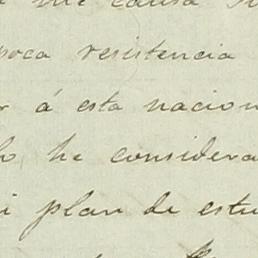 me causa
poca resistencia
r á esta nacion
lo he considera
i plan de estu